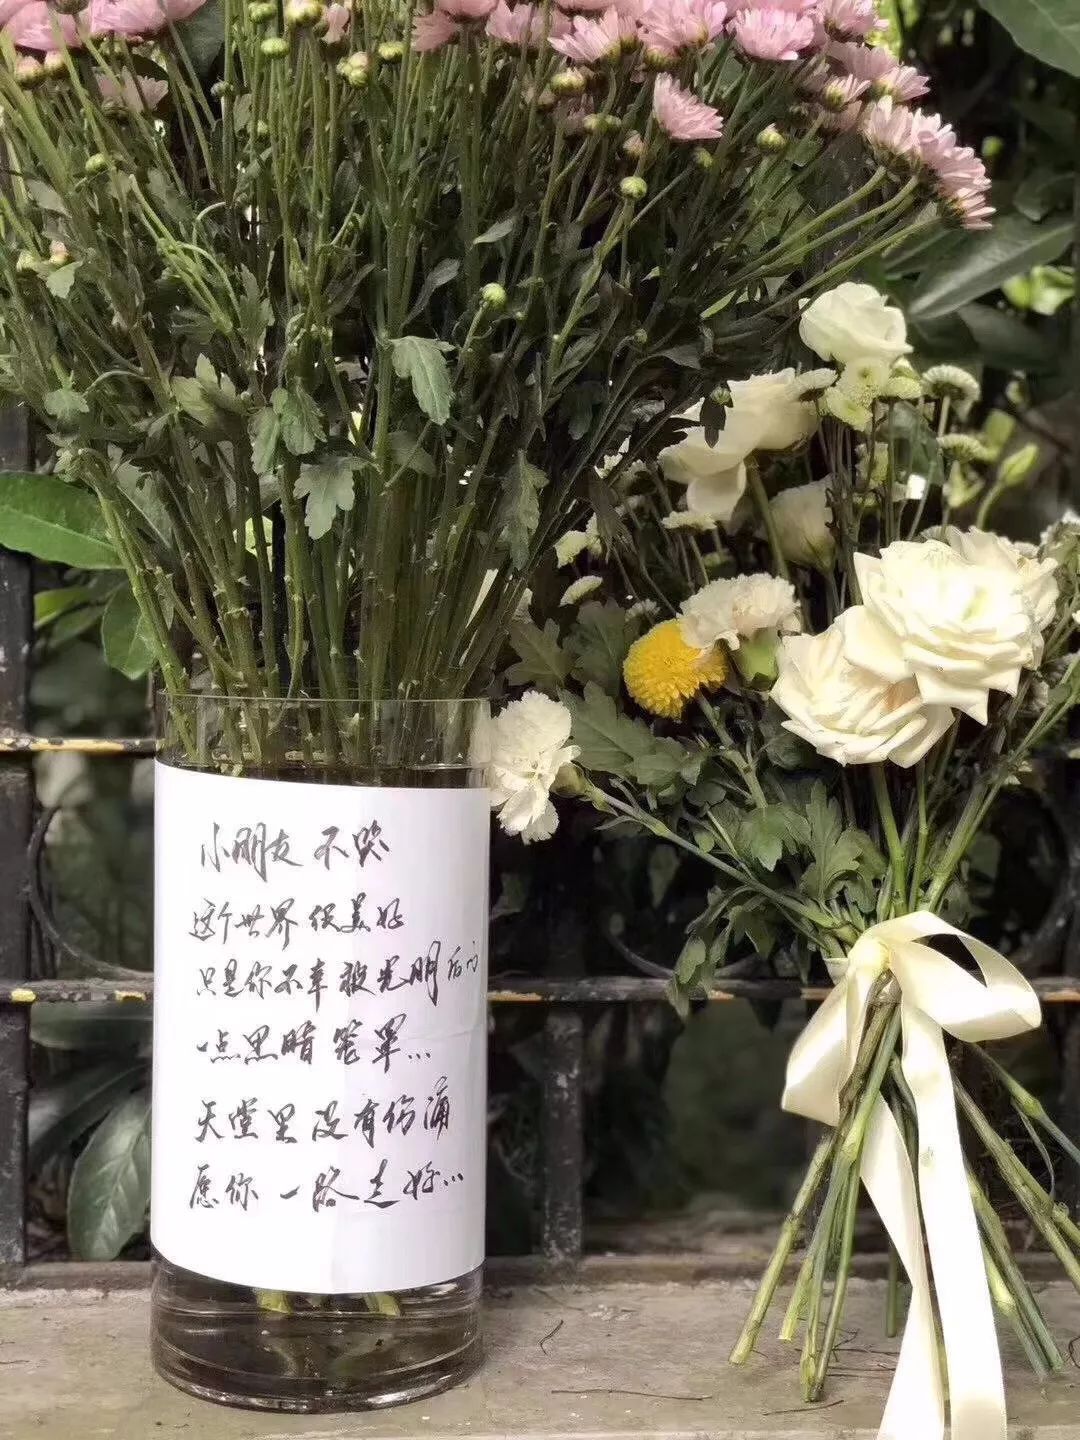 小朋友 不哭
这个世界很美好
只是你不幸被光明后的
一点黑暗笼罩...
天堂里没有伤痛
愿你一路走好...